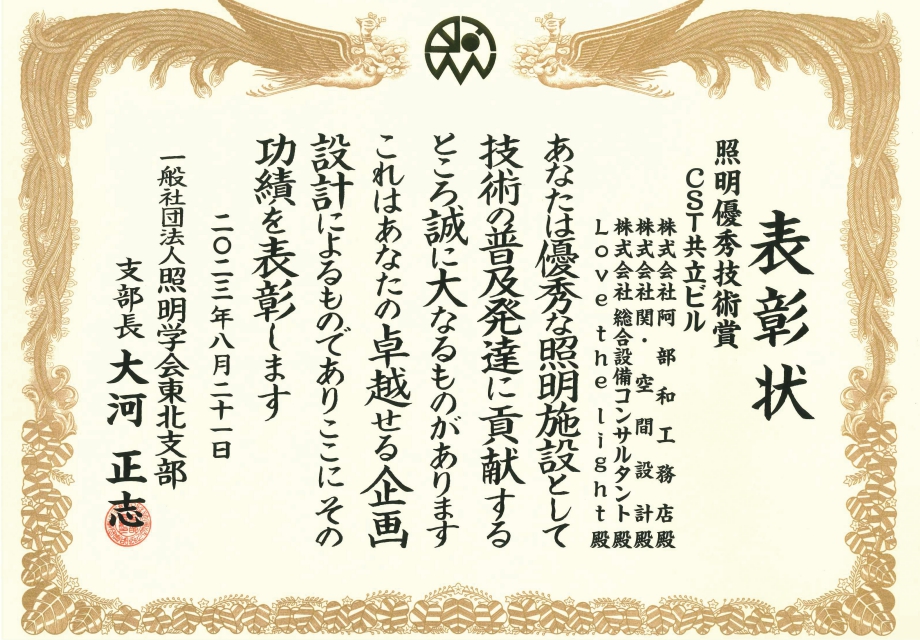 表彰状
照明優秀技術賞
CST共立ビル
株式会社阿部和工務店殿
株式会社関・空間設計殿
株式会社総合設備コンサルタント殿
Love the light殿
あなたは優秀な照明施設として
技術の普及発達に貢献する
ところ誠に大なるものがあります
これはあなたの卓越せる企画
設計によるものでありここにその
功績を表彰します
二〇二三年八月二十一日
一般社団法人照明学会東北支部
支部長 大河正志